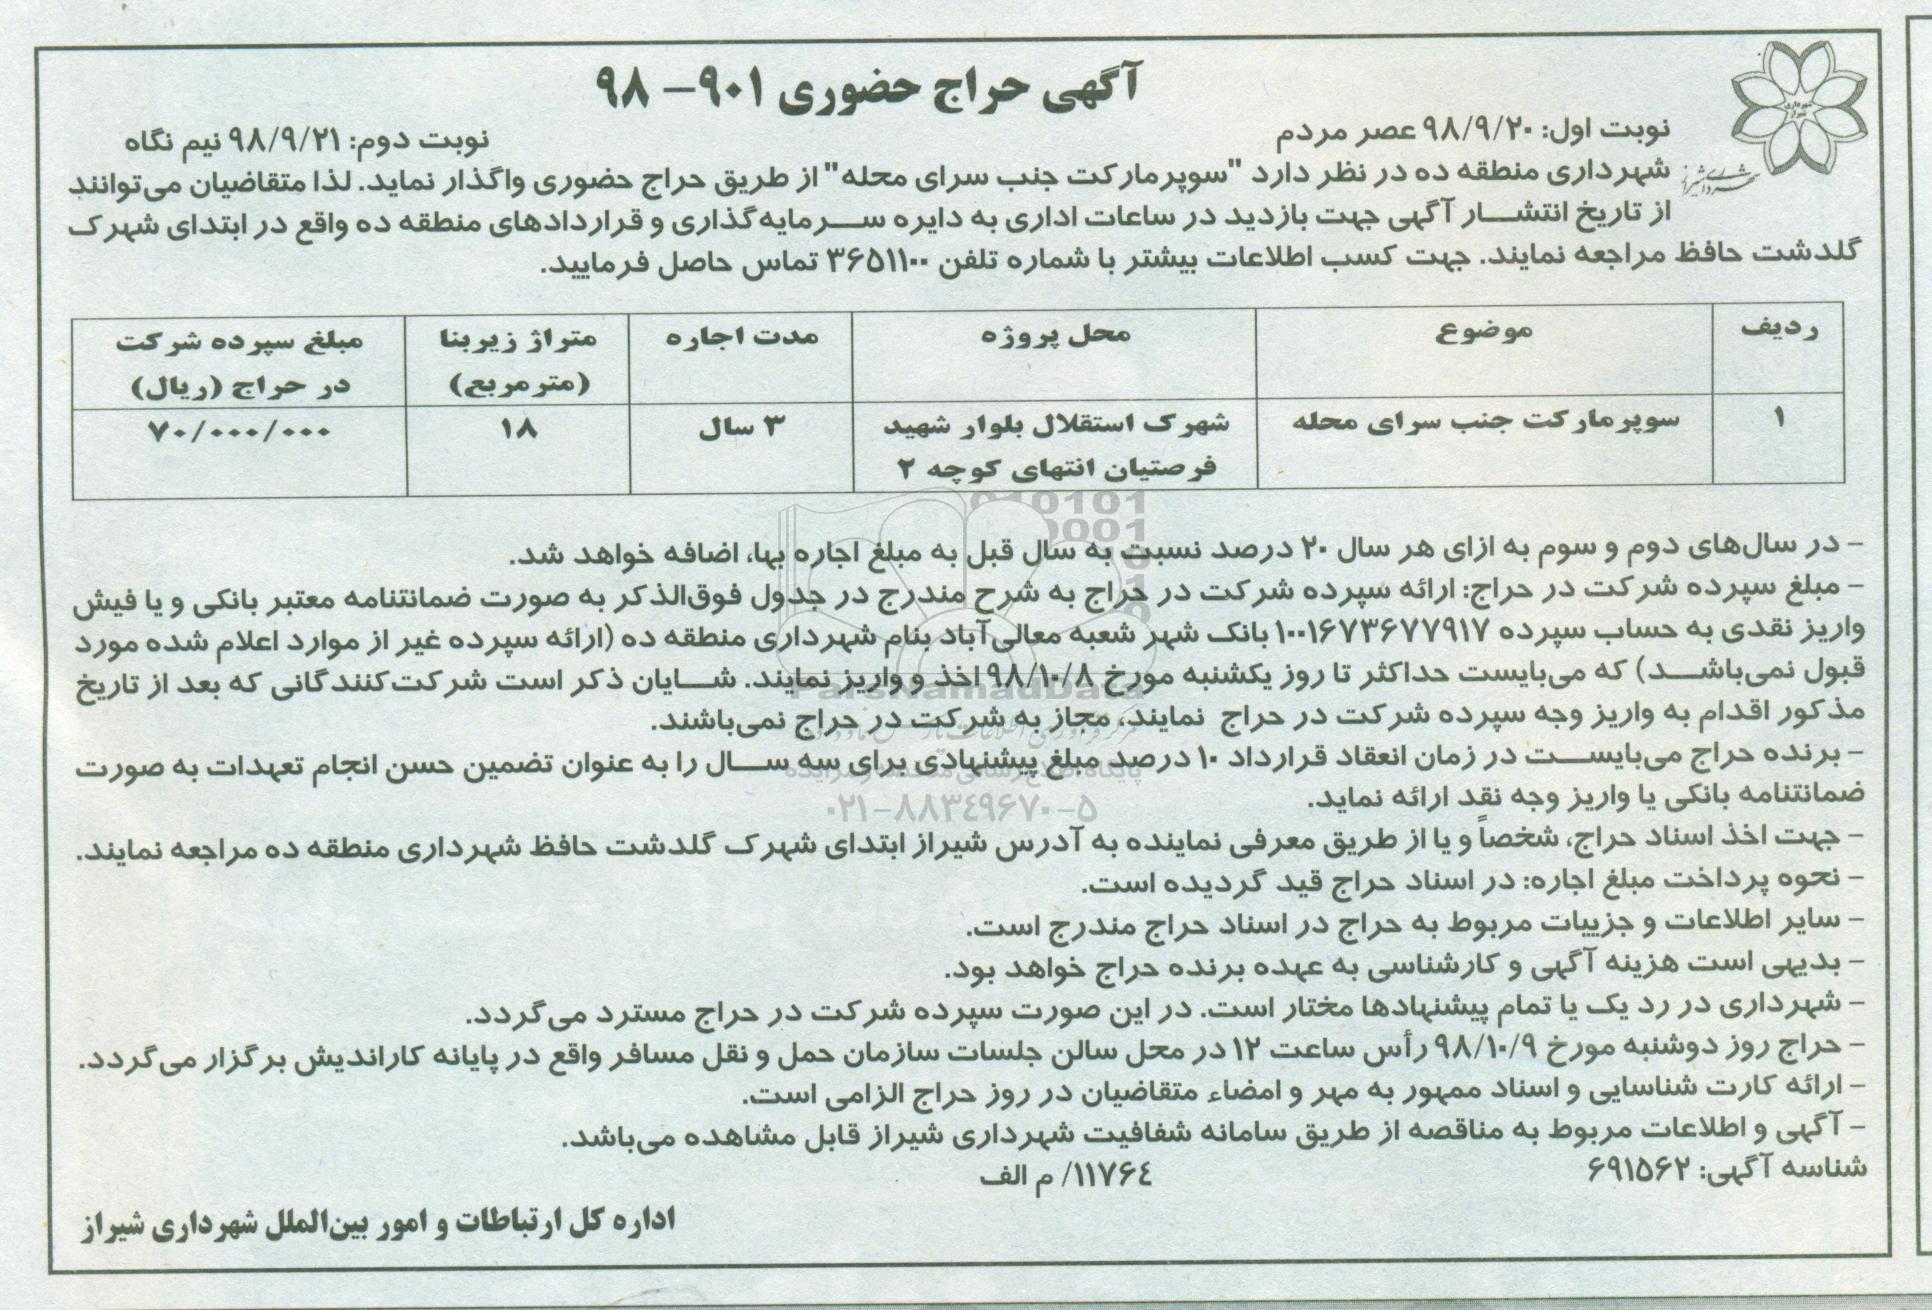 آگهی حراج حضوری ۹۰۱- ۹۸
نوبت اول: ۹۸/۹/۲۰ عصر مردم
نوبت دوم: ۹۸/۹/۲۱ نیم نگاه
شهرداری منطقه ده در نظر دارد "سوپرمارکت جنب سرای محله" از طریق حراج حضوری واگذار نماید. لذا متقاضیان می‌توانند
از تاریخ انتشار آگهی جهت بازدید در ساعات اداری به دایره سرمایه‌گذاری و قراردادهای منطقه ده واقع در ابتدای شهرک
گلدشت حافظ مراجعه نمایند. جهت کسب اطلاعات بیشتر با شماره تلفن ۳۶۵۱۱۰۰ تماس حاصل فرمایید.
ردیف
موضوع
محل پروژه
مدت اجاره
متراژ زیربنا
(مترمربع)
مبلغ سپرده شرکت
در حراج (ریال)
۱
سوپرمارکت جنب سرای محله
شهرک استقلال بلوار شهید
فرصتیان انتهای کوچه ۲
۳ سال
۱۸
۷۰/۰۰۰/۰۰۰
- در سال‌های دوم و سوم به ازای هر سال ۲۰ درصد نسبت به سال قبل به مبلغ اجاره بها، اضافه خواهد شد.
- مبلغ سپرده شرکت در حراج: ارائه سپرده شرکت در حراج به شرح مندرج در جدول فوق‌الذکر به صورت ضمانتنامه معتبر بانکی و یا فیش
واریز نقدی به حساب سپرده ۱۰۰۱۶۷۳۶۷۷۹۱۷ بانک شهر شعبه معالی‌آباد بنام شهرداری منطقه ده (ارائه سپرده غیر از موارد اعلام شده مورد
قبول نمی‌باشد) که می‌بایست حداکثر تا روز یکشنبه مورخ ۹۸/۱۰/۸ اخذ و واریز نمایند. شایان ذکر است شرکت‌کنندگانی که بعد از تاریخ
مذکور اقدام به واریز وجه سپرده شرکت در حراج نمایند، مجاز به شرکت در حراج نمی‌باشند.
- برنده حراج می‌بایست در زمان انعقاد قرارداد ۱۰ درصد مبلغ پیشنهادی برای سه سال را به عنوان تضمین حسن انجام تعهدات به صورت
ضمانتنامه بانکی یا واریز وجه نقد ارائه نماید.
- جهت اخذ اسناد حراج، شخصاً و یا از طریق معرفی نماینده به آدرس شیراز ابتدای شهرک گلدشت حافظ شهرداری منطقه ده مراجعه نمایند.
- نحوه پرداخت مبلغ اجاره: در اسناد حراج قید گردیده است.
- سایر اطلاعات و جزییات مربوط به حراج در اسناد حراج مندرج است.
- بدیهی است هزینه آگهی و کارشناسی به عهده برنده حراج خواهد بود.
- شهرداری در رد یک یا تمام پیشنهادها مختار است. در این صورت سپرده شرکت در حراج مسترد می‌گردد.
- حراج روز دوشنبه مورخ ۹۸/۱۰/۹ رأس ساعت ۱۲ در محل سالن جلسات سازمان حمل و نقل مسافر واقع در پایانه کاراندیش برگزار می‌گردد.
- ارائه کارت شناسایی و اسناد ممهور به مهر و امضاء متقاضیان در روز حراج الزامی است.
- آگهی و اطلاعات مربوط به مناقصه از طریق سامانه شفافیت شهرداری شیراز قابل مشاهده می‌باشد.
شناسه آگهی: ۶۹۱۵۶۲
۱۱۷۶۴/ م الف
اداره کل ارتباطات و امور بین‌الملل شهرداری شیراز
ParsNamadData
۰۲۱-۸۸۳۴۹۶۷۰-۵